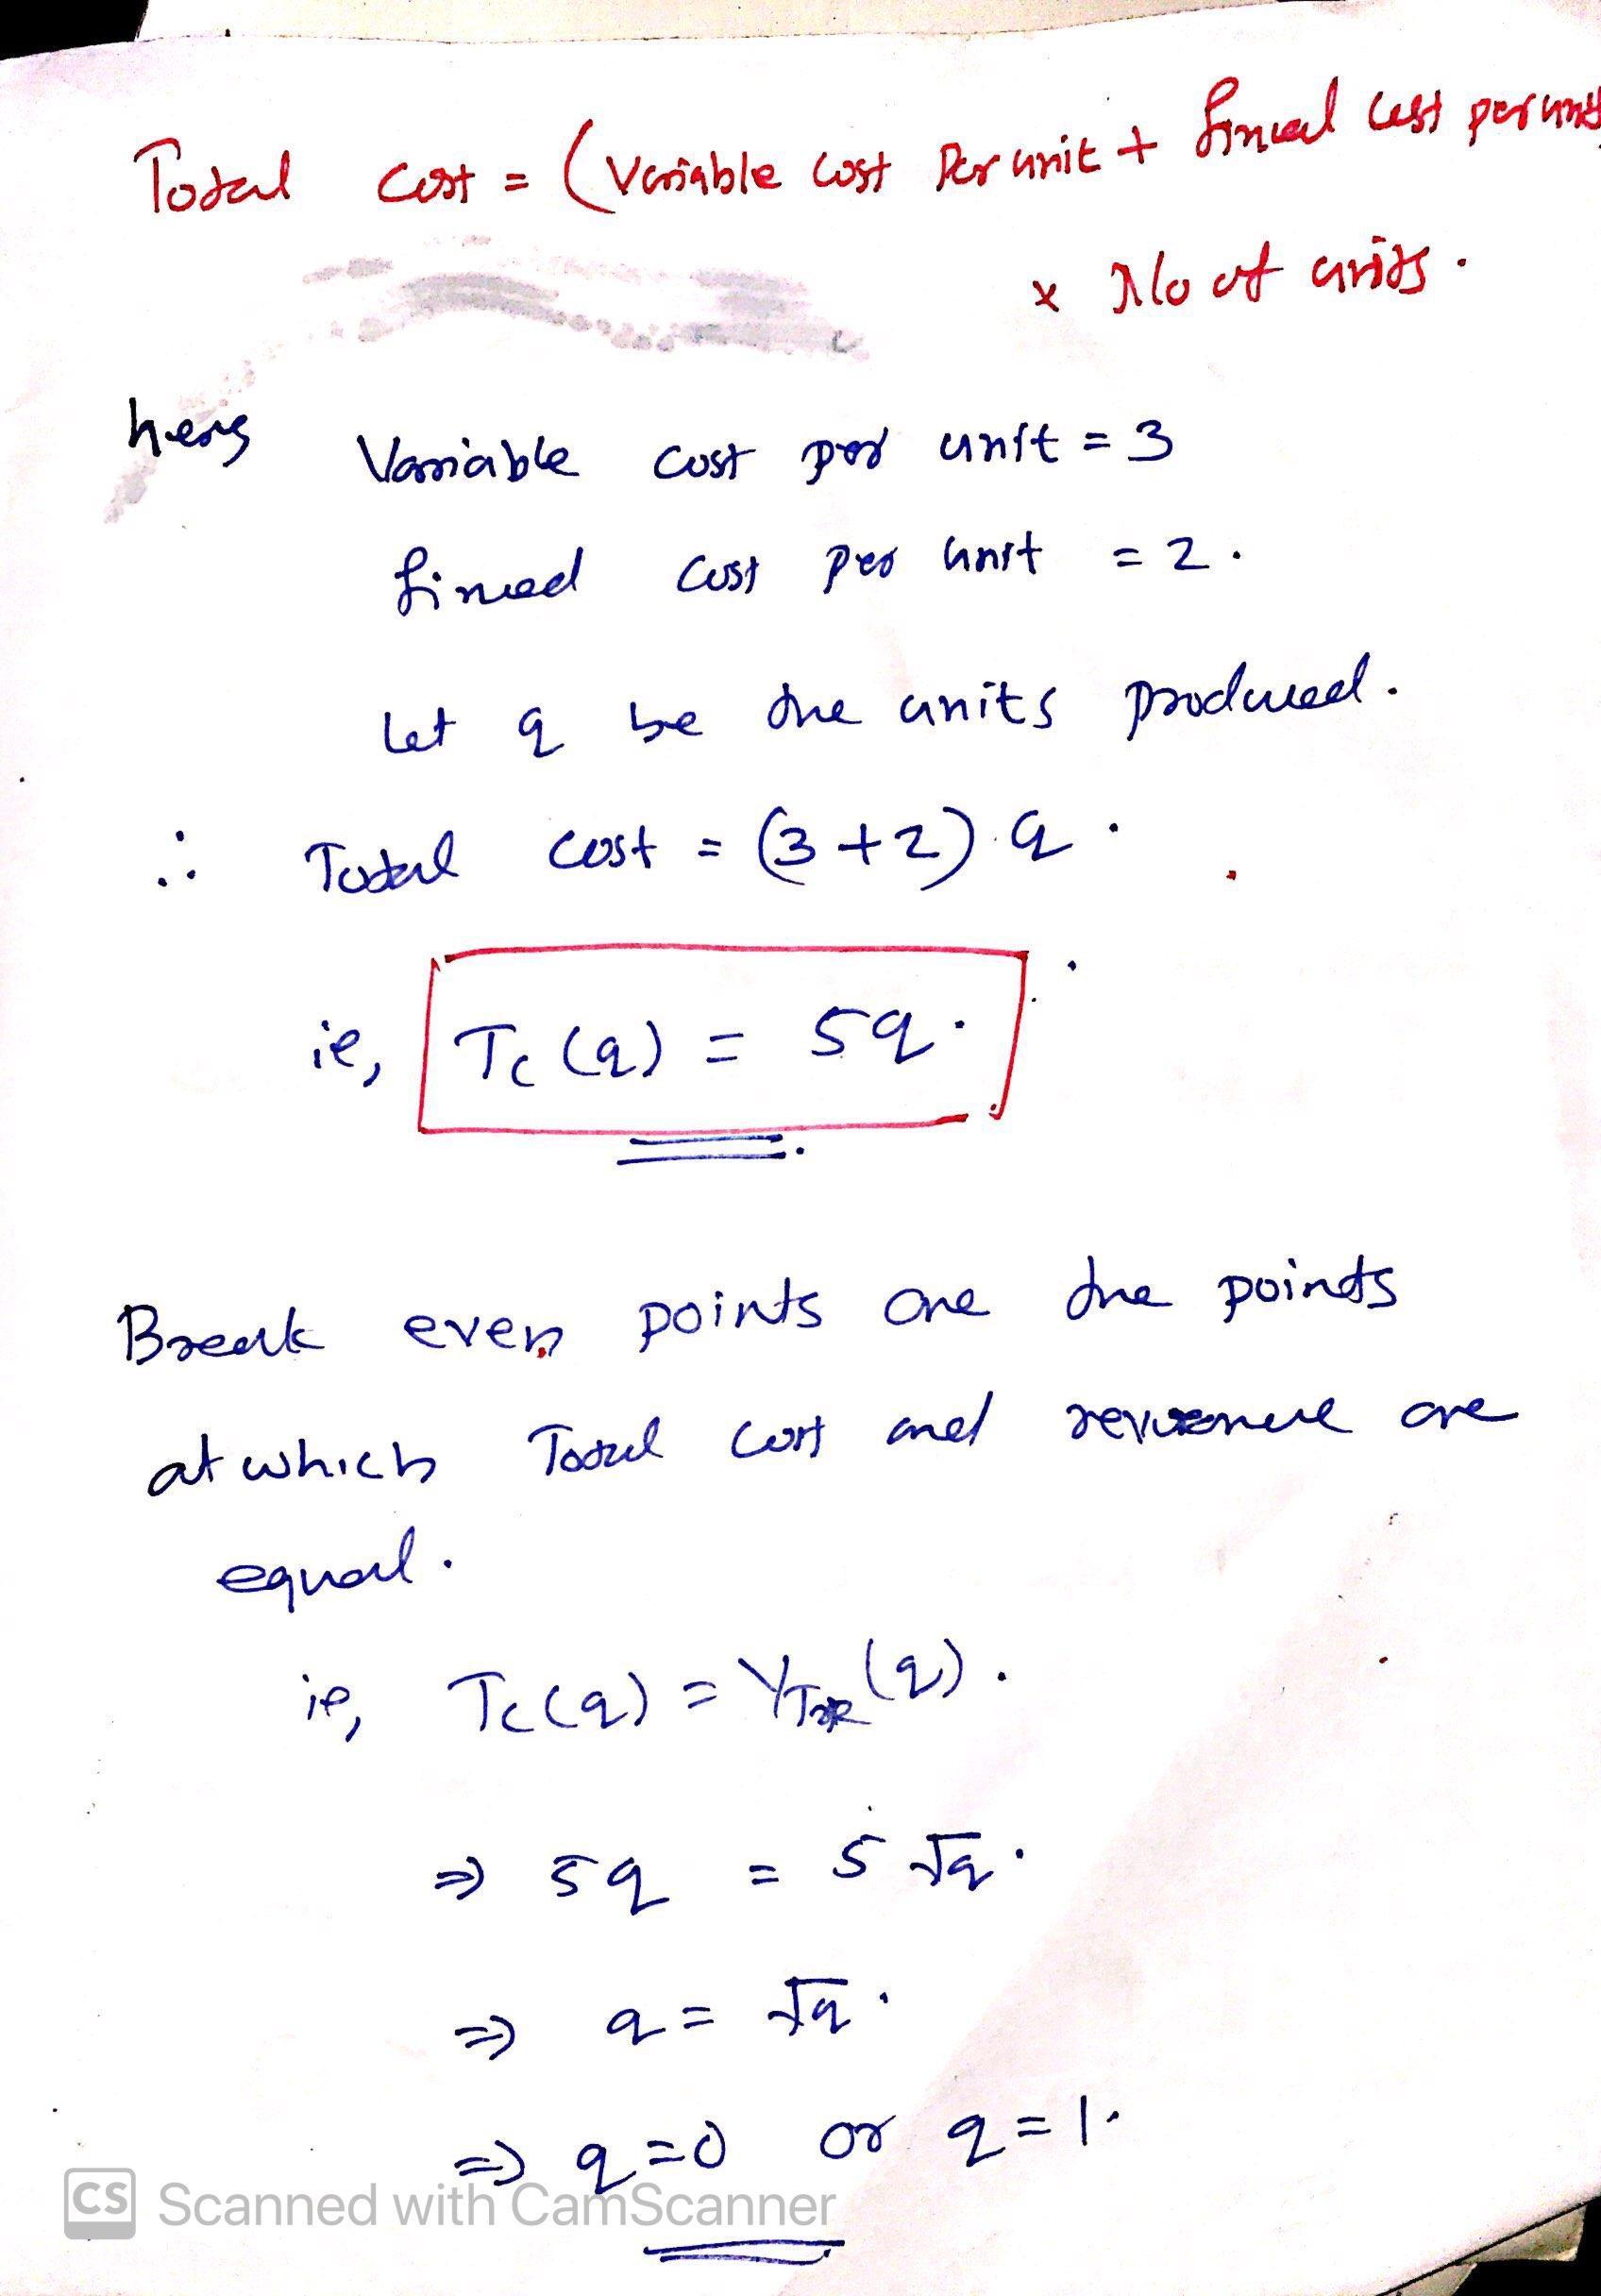 Total cost = (Variable cost per unit + fixed cost per unit
× No of units.
here Variable cost per unit = 3
fixed cost per unit = 2.
Let q be the units produced.
∴ Total cost = (3+2) q.
ie, Tc (q) = 5q.
Break even points are the points
at which Total cost and revenue are
equal.
ie, Tc(q) = (q).
⇒ 5q = 5√q.
⇒ q = √q.
⇒ q=0 or q=1.
CS Scanned with CamScanner